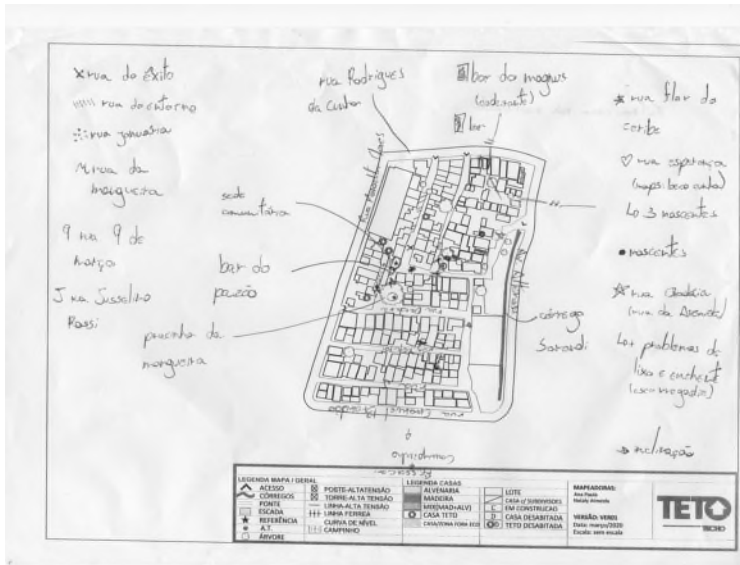 rua do êxito
rua do entorno
rua januária
rua da
mangueira
9 rua 9 de
março
J rua Jusselino
Rossi
rua Rodrigues
da Cunha
bar do magnus
(cadeirante)
bar
sede
comunitária
bar do
pracinha da
mangueira
córrego
Sarandi
rua flor do
caribe
rua esperança
(maps: beco cunha)
↳ 3 nascentes
nascentes
(rua da Assembl
↳ + problemas de
lixo e enchente
(escorregadia)
→ inclinação
LEGENDA MAPA / GERAL
ACESSO
CÓRREGOS
PONTE
ESCADA
REFERÊNCIA
A.T.
ÁRVORE
POSTE-ALTATENSÃO
TORRE-ALTA TENSÃO
LINHA-ALTA TENSÃO
LINHA FERREA
CURVA DE NÍVEL
CAMPINHO
LEGENDA CASAS
ALVENARIA
MADEIRA
MIX(MAD+ALV)
CASA TETO
CASA/ZONA FORA ECO
LOTE
CASA c/ SUBDIVISÕES
C EM CONSTRUCAO
D CASA DESABITADA
TETO DESABITADA
MAPEADORAS:
Ana Paula
Nataly Almeida
VERSÃO: VERDE
Data: março/2020
Escala: sem escala
TETO
TECHO